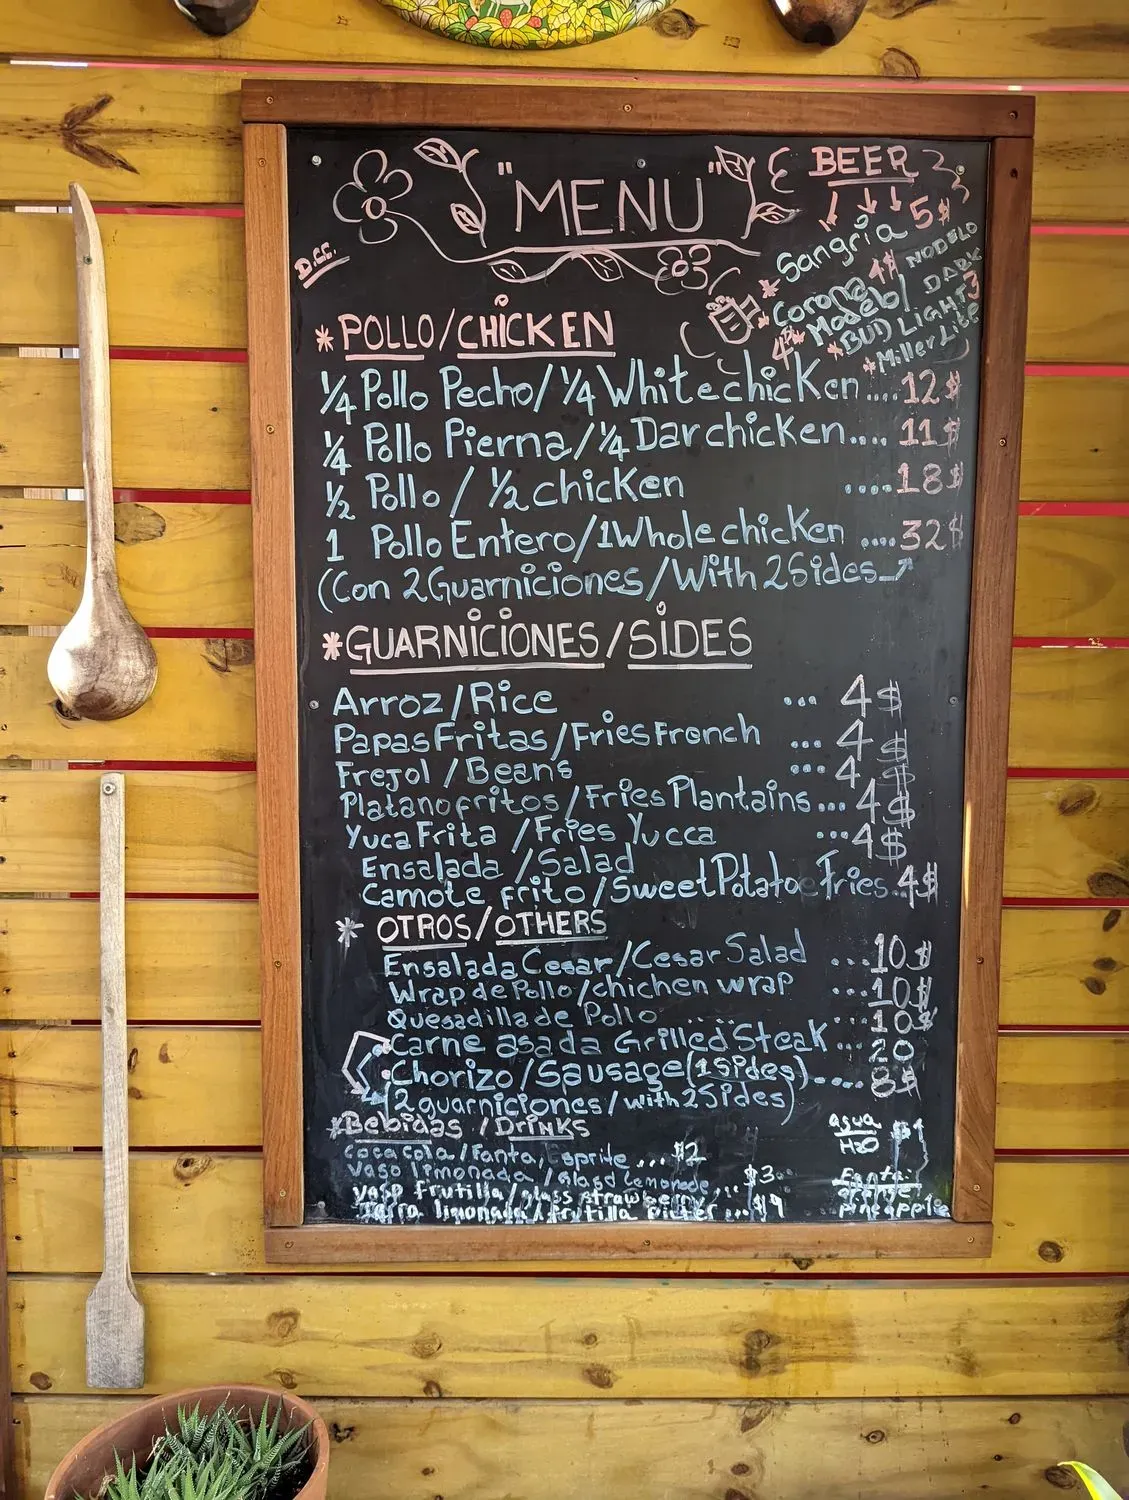 "MENU"
BEER
D.C.C.
Sangria 5$
* Corona 4$
* Modelo / MODELO DARK
4$
* BUD LIGHT 3
* Miller Lite
* POLLO/CHICKEN
1/4 Pollo Pecho/1/4 White chicken....12$
1/4 Pollo Pierna/1/4 Dar chicken.... 11$
1/2 Pollo / 1/2 chicken ....18$
1 Pollo Entero/1 Whole chicken ....32$
(Con 2 Guarniciones/With 2 Sides
* GUARNICIONES/SIDES
Arroz/Rice ... 4$
Papas Fritas/Fries French ... 4$
Frejol/Beans ... 4$
Platano fritos/Fries Plantains... 4$
Yuca Frita /Fries Yucca ... 4$
Ensalada /Salad
Camote frito/Sweet Potatoe Fries..4$
* OTROS/OTHERS
Ensalada Cesar/Cesar Salad ...10$
Wrap de Pollo/chichen wrap ...10$
Quesadilla de Pollo ... 10$
Carne asada Grilled Steak ... 20
Chorizo/Sausage(1Sides).... 8$
(2 guarniciones/with 2 Sides)
* Bebidas /Drinks
coca cola/fanta, sprite ... $2
vaso limonada /glasd Lemonade .. $3
vaso frutilla/glass strawberry
Jarra limonada/frutilla picter ... $9
agua $1
H2O
Fanta:
orange
pineapple